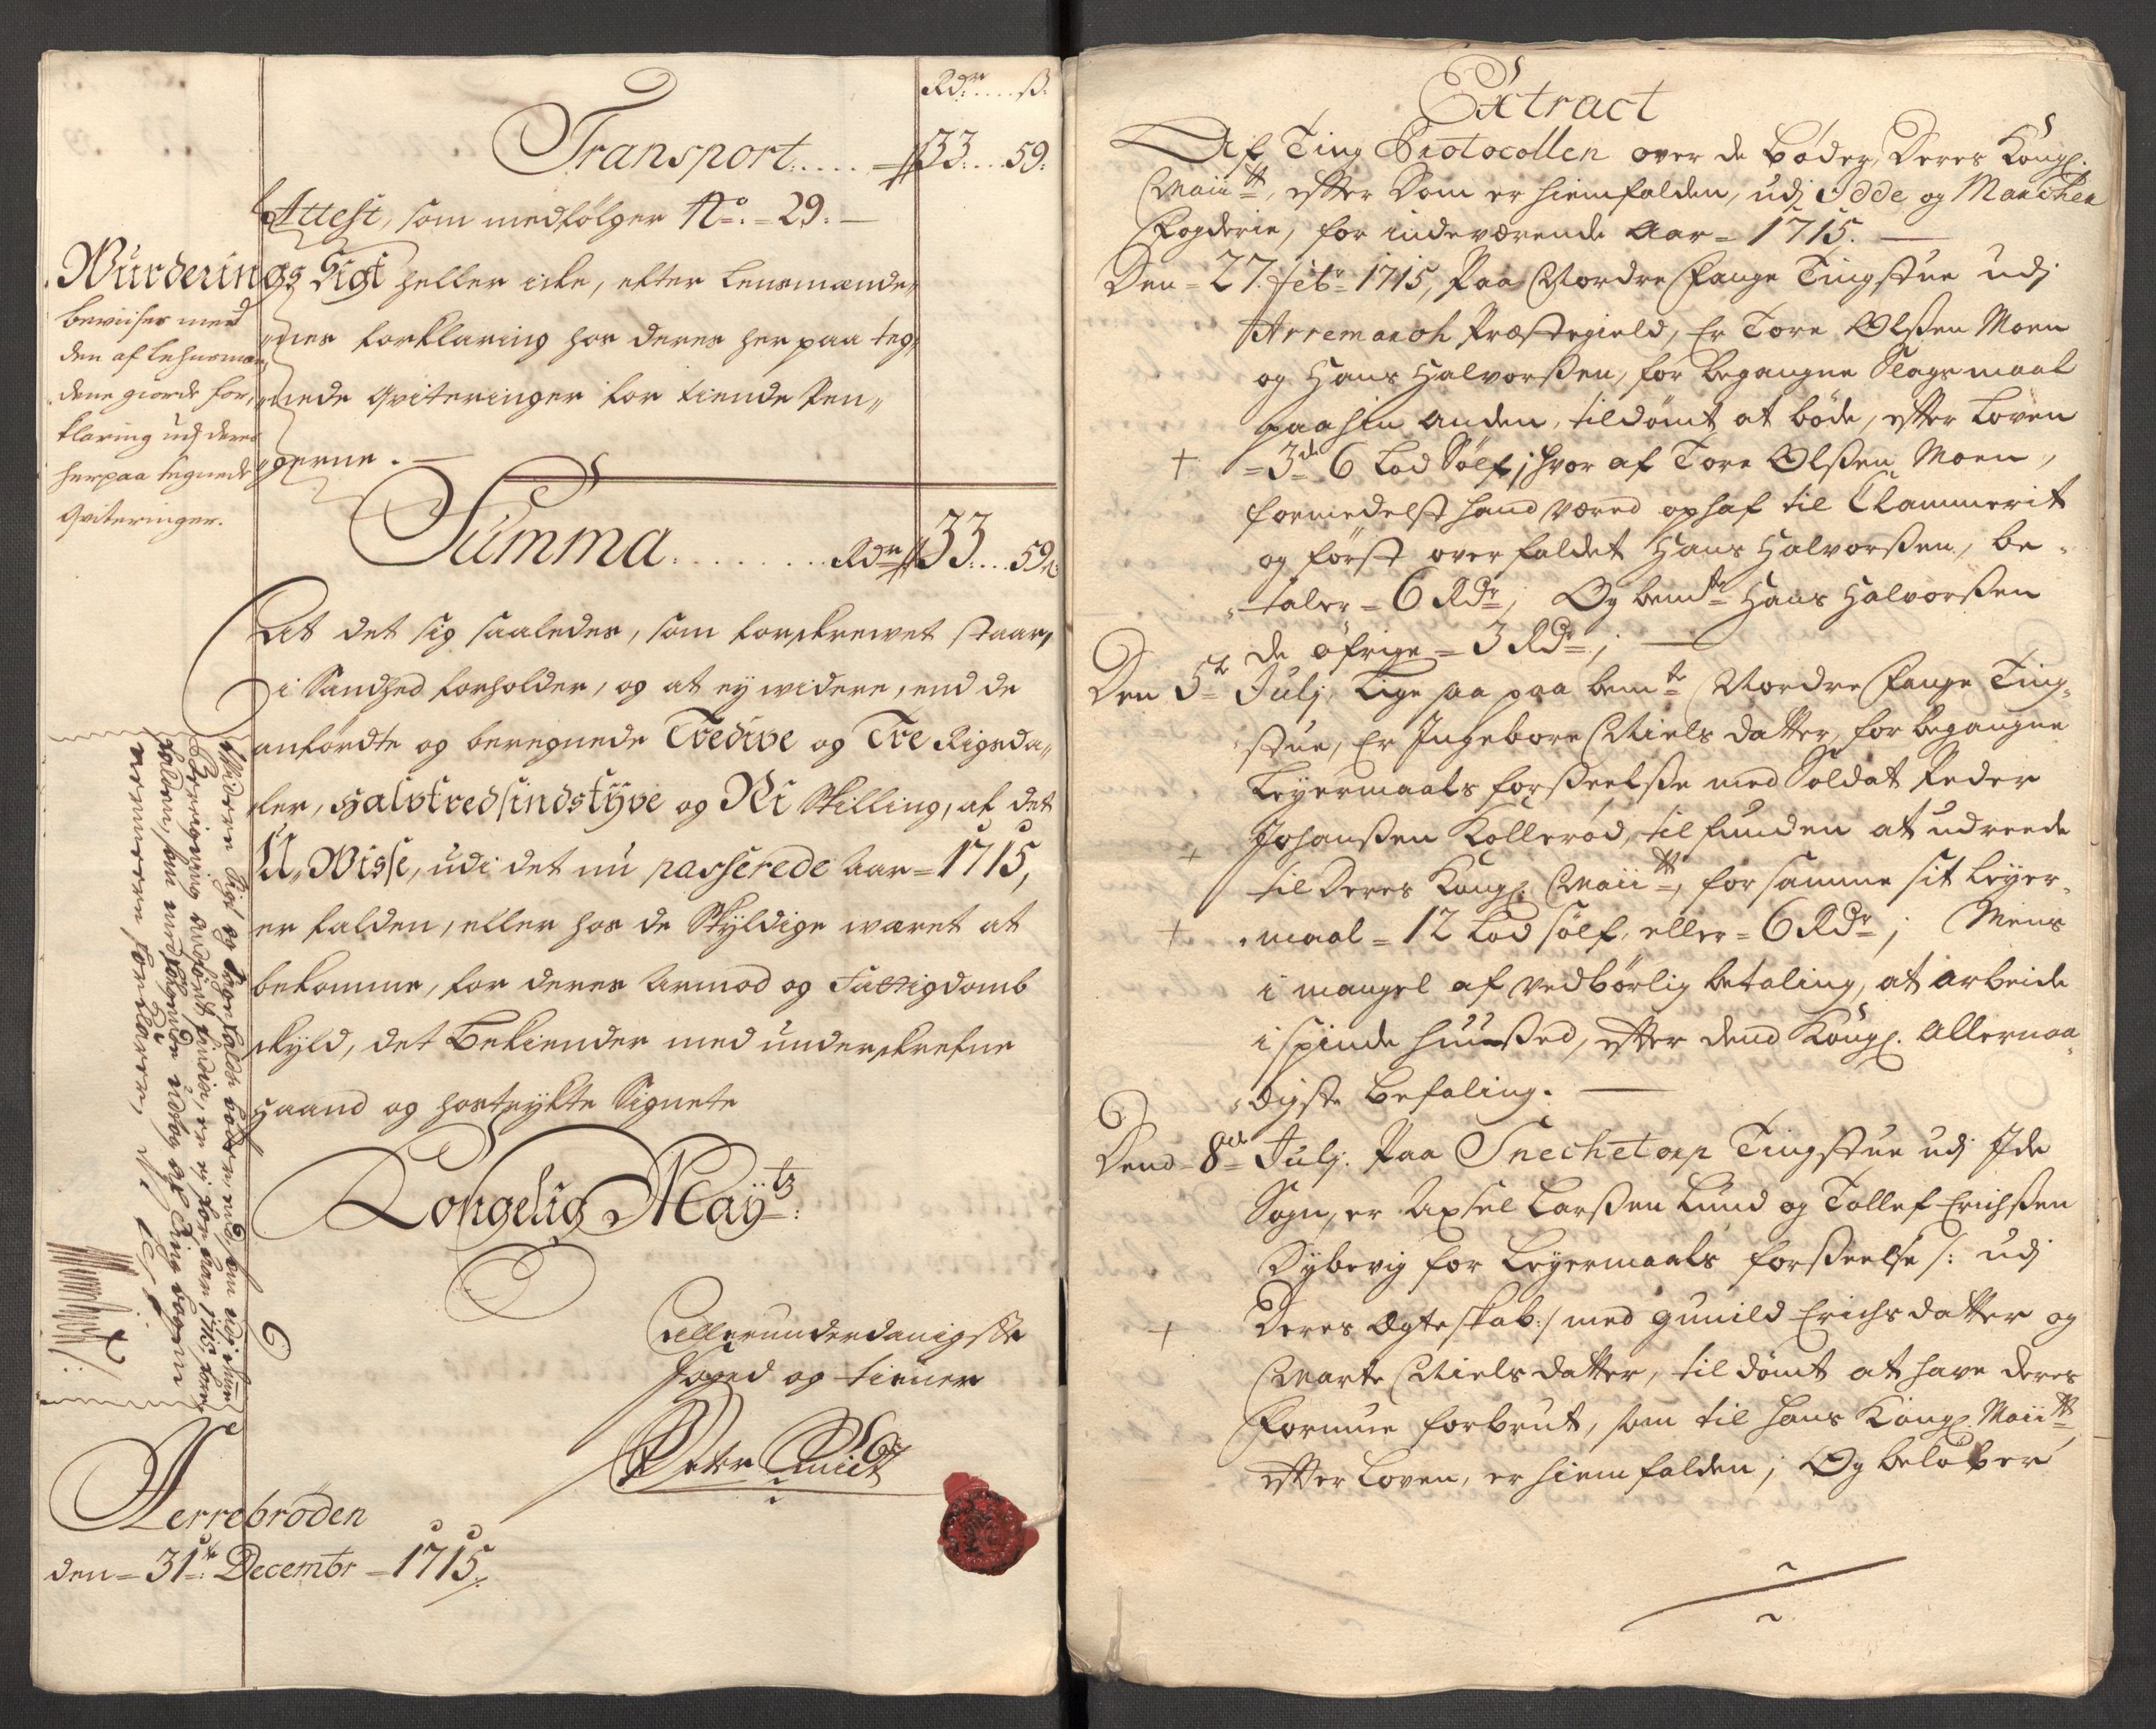 Rdr ß.
Transport. . . . . 33 . . . 59:
Attest, som medfølger No. 29.
Wurderings Sigt heller icke, efter lensmænde„
„nes forklaring hos deres her paa teg„
„nede qviteringer for tiende Pen„
„gerne.
bewiises med
den af lehnsmæn
dene giorde for„
klaring udj deres
herpaa tegnede
qviteringer.
Summa . . . . . . . Rdr 33 . . . 59
At det sig saaledes, som forskrewet staar,
i Sandhed forholder, og at ey widere, end de
anførdte og beregnede Tredive og Tre Rigsda„
ler, Halvtredsindstyve og Ni Skilling, af det
U„Wisse, udi det nu passerede Aar = 1715,
er falden, eller hos de Skyldige waret at
bekomme, for deres Armod og Fattigdomb
skyld, det Bekiender med underskrefne
Haand og hostrykte Signete
Kongelig Mayts:
Allerunderdanigste
foged og tiener
Peter
Herrebrøden
den = 31te: Decembr = 1715.
Extract
Af Ting Protocollen over de bøder, Deres Kongl.
Maiitt, efter Dom er hiemfalden, udj Idde og Marcher
Fogderie, for indeværende Aar = 1715.
Den = 27. Febr 1715, Paa Nordre Fange Tingstue udj
Arremarch Præstegield, Er Tore Olßen Moen
og Hans Halvorßen, for begangne Slagsmaal
paa hin anden, tildømt at bøde, efter Loven
+ = 3de 6 Lod Sølf; hvor af Tore Olßen Moen,
formedelst hand været ophaf til Klammerit
og først over faldet Hans Halvorßen, be„
„taler = 6 Rdr; Og bemte Hans Halvorßen
de øfrige = 3 Rdr;
Den 5te Julj, Lige saa paa bemte Nordre Fange Ting„
„stue, Er Ingebore Nielsdatter, for begangne
Leyermaals forseelße med Soldat Peder
Johanßen Kollerød, til funden at udreede
+ til Deres Kongl. Maiitt, for samme sit Leyer„
+ „maal = 12 Lod sølf, eller = 6 Rdr; Mens
i mangel af vedbørlig betaling, at arbeide
i spinde huußed, efter dend Kongl. Allernaa„
„digste Befaling.
Dend = 8de Julj. Paa Snechetorp Tingstue udj Ide
Sogn, er Axsel Larßen Lund og Tollef Erichßen
Dybevig for Leyermaals forseelse /: udj
+ Deres ægteskab :/ med Gunild Erichsdatter og
Marte Nielsdatter, til dømt at have deres
Formue forbrut, som til Hans Kongl. Maiitt
efter Loven, er hiemfalden; Og beløber